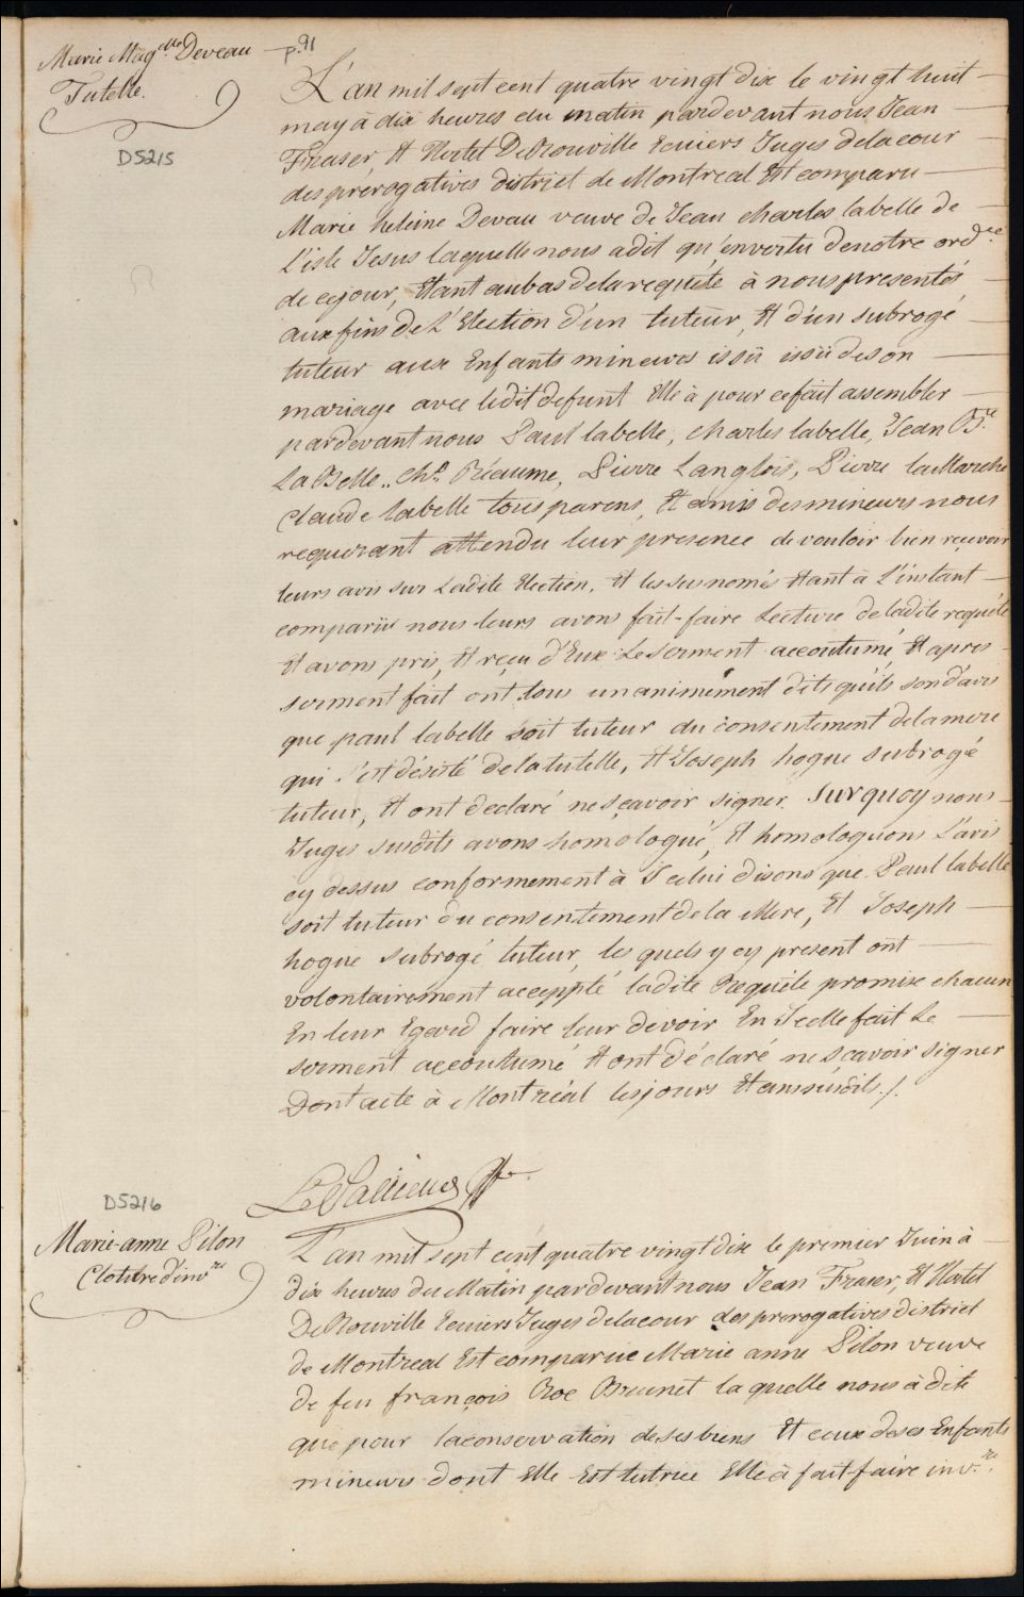 Marie Mag.elle Deveau
Tutelle.
D5215
p.91
L'an mil sept cent quatre vingt dix le vingt huit
may à dix heures du matin pardevant nous Jean
Fraser, Et Hertel DeRouville Ecuiers Juges delacour
des prerogatives district de Montreal Est comparu
Marie heleine Devau veuve de Jean charles labelle de
L'isle Jesus laquelle nous adit qu'envertu denotre ord.ce
de cejour, Etant aubas delarequête à nous presentés
aux fins de L'Election d'un tuteur, Et d'un subrogé
tuteur aux Enfants mineures issü issüdeson
mariage avec ledit defunt Elle à pour cefait assembler
pardevant nous Paul labelle, charles labelle, Jean B.te
LaBelle.. Ch.s Réaume, Pierre Langlois, Pierre laMarche
Claude labelle tous parens, Et amis desmineurs nous
requerant attendu leur presence de vouloir bien reçevoir
leurs avis sur Ladite Election, Et les susnomés Etant à L'instant
comparüs nous leurs avons fait-faire Lecture deladite requête
Et avons pris, Et reçu d'Eux Le Serment accoutumé Et apres
serment fait ont tous unanimement dits qu'ils sond'avis
que paul labelle soit tuteur du consentement delamere
qui s'est désisté delatutelle, Et Joseph hogue subrogé
tuteur, Et ont declaré nesçavoir signer. Surquoy nous
Juges susdits avons homologué, Et homologuons L'avis
cy dessus conformement à Icelui disons que Paul labelle
soit tuteur du consentement de la Mere, Et Joseph
hogue Subrogé tuteur, les quels y cy present ont
volontairement acceppté ladite Requête promise chacun
En leur Egard faire leur devoir En Icelle fait Le
serment accoutumé Et ont déclaré ne sçavoir signer
Dont acte à Montréal lesjours Et ansusdits./.
LePallieur Gff.
D5216
Marie-anne Pilon
Cloture d'inv.re
L'an mil sept cent quatre vingt dix le premier Juin à
dix heures du Matin pardevant nous Jean Fraser, Et Hertel
DeRouville Ecuiers Juges delacour des prerogatives district
de Montreal Est comparue Marie anne Pilon veuve
de feu françois Roc Brunet la quelle nous à dite
que pour laconservation desesbiens Et ceux deses Enfants
mineurs dont Elle Est tutrice Elle à fait faire inv.re.